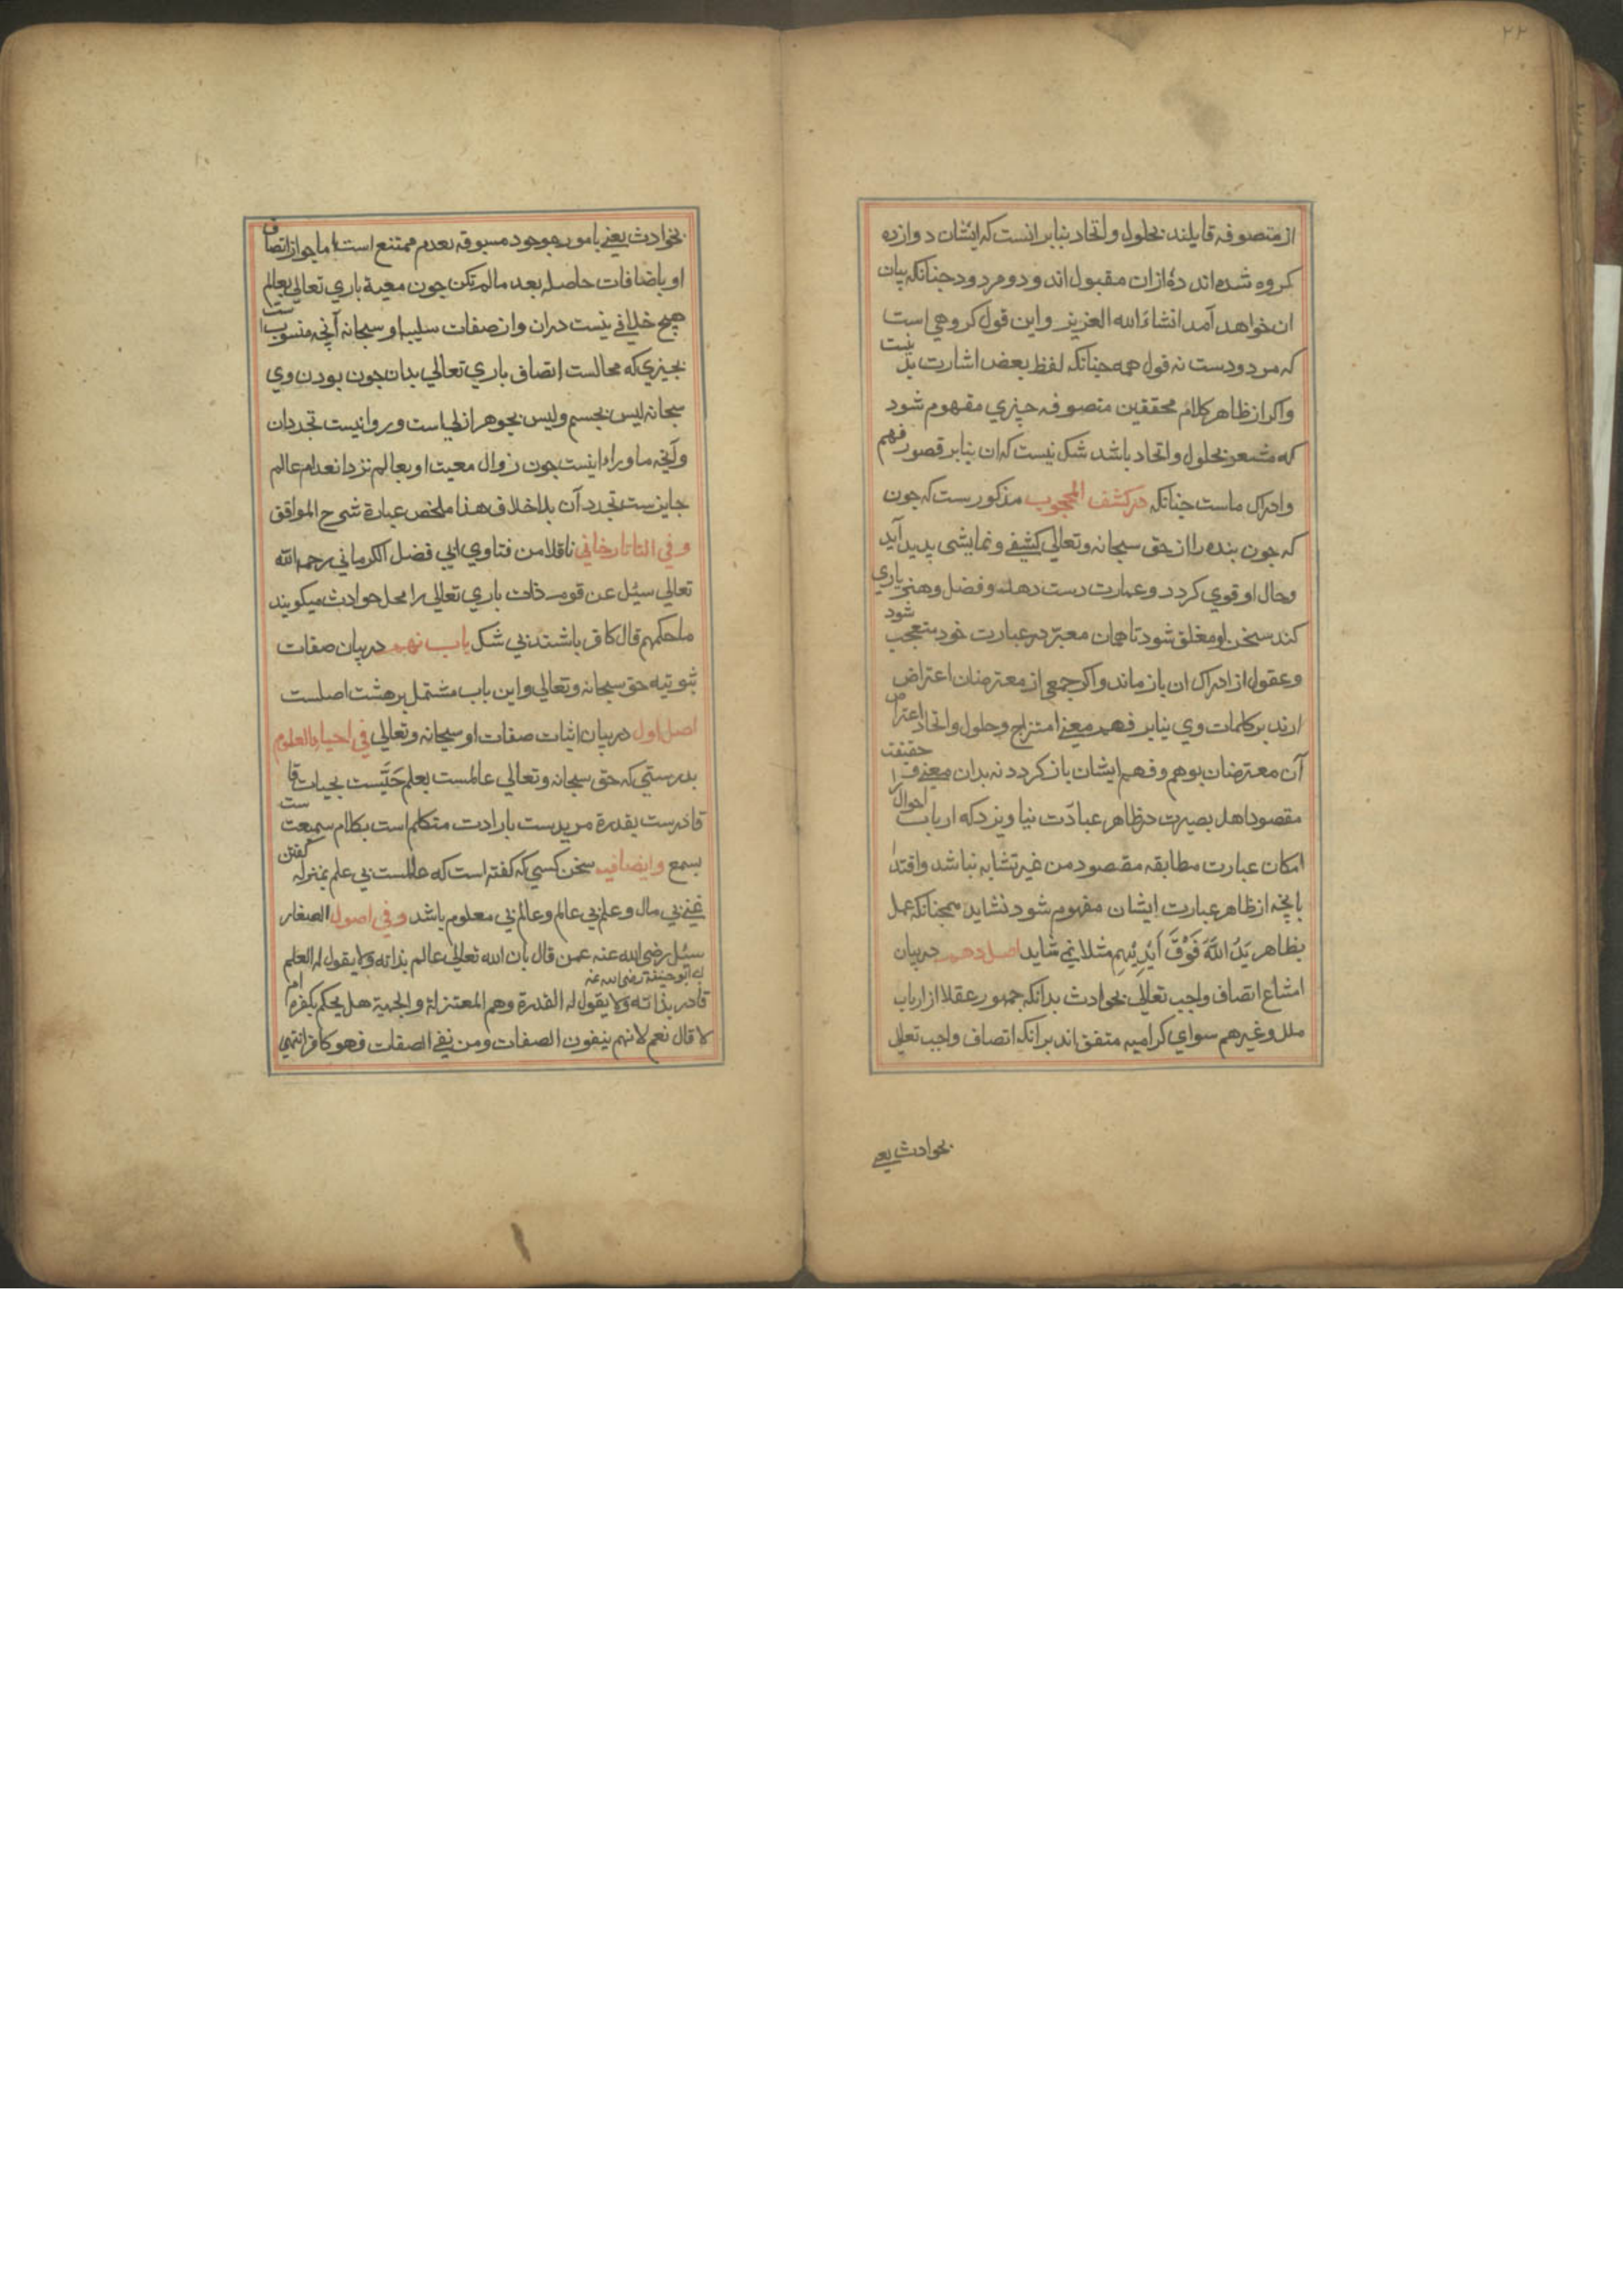 ۲۲
از متصوفه قایلند بحلول و اتحاد بنابر انست که ایشان دوازده
کروه شده اند ده ازان مقبول اند و دو مردود جنانکه بیان
ان خواهد آمد انشاء الله العزیز و این قول کروهی است
که مردودست نه قول همه جنانکه لفظ بعض اشارت بدینست
واکر از ظاهر کلام محققین متصوفه چیزی مفهوم شود
که مشعر بحلول و اتحاد باشد شک نیست که ان بنابر قصور فهم
وادراک ماست جنانکه در کشف المحجوب مذکورست که جون
که جون بنده را از حق سبحانه و تعالی کشفی و نمایشی بدید آید
وحال او قوی کردد و عبارت دست دهد و فضل و هنر یاری
کند سخن او مغلق شود تا همان معبّر در عبارت خود متعجب شود
وعقول از ادراک ان باز ماند واکر جمعی از معترضان اعتراض
ارند بر کلمات وی بنابر فهم معنی امتزاج و حلول و اتحاد اعتراض
آن معترضان بوهم و فهم ایشان باز کردد نه بدان معنی حقیقت
مقصود اهل بصیرت در ظاهر عبادّت نیاویزد که ارباب احوال را
امکان عبارت مطابقه مقصود من غیر تشابه نباشد واقتدا
بانچه از ظاهر عبارت ایشان مفهوم شود نشاید همجنانکه عمل
بظاهر یَدُ اللَّهَ فَوْقَ اَیْدِیْهِمِ مثلا نمی شاید اصل دهم در بیان
امتناع اتصاف واجب تعالی بحوادث بدانکه جمهور عقلا از ارباب
ملل و غیرهم سوای کرامیه متفق اند بر انکه اتصاف واجب تعالی
بحوادث یعنی
بحوادث یعنی بامور موجود مسبوقه بعدم ممتنع است اما جواز اتصاف
او باضافات حاصله بعد مالم تکن جون معیة باری تعالی بعالم
هیچ خلافی نیست دران واز صفات سلبیه او سبحانه آنچه منسوبست
بجیزی که محالست اتصاف باری تعالی بدان جون بودن وی
سبحانه لیس بجسم ولیس بجوهر ازلیاست وروا نیست تجدد ان
وآنچه ماوراء اینست جون زوال معیت او بعالم نزد انعدام عالم
جایزست تجدد آن بلا خلاف هذا ملخص عبارة شرح المواقف
و فی التاتارخانی ناقلا من فتاوی ابی فضل الکرمانی رحمه الله
تعالی سئل عن قوم ذات باری تعالی را محل حوادث میکویند
ما حکمهم قال کافر باشند بی شک باب نهم در بیان صفات
ثبوتیه حق سبحانه و تعالی و این باب مشتمل بر هشت اصلست
اصل اول در بیان اثبات صفات او سبحانه و تعالی فی احیاء العلوم
بدرستی که حق سبحانه و تعالی عالمست بعلم حَیَّست بحیات
قادرست بقدرة مریدست بارادت متکلم است بکلام سمیعست
بسمع وایضا فیه سخن کسی که کفته است که عالمست بی علم بمنزله کفتن
غنی بی مال و علم بی عالم و عالم بی معلوم باشد و فی اصول الصغار
سئل رضی الله عنه عمن قال بان الله تعالی عالم بذاته ولا یقول له العلم
ای ابو حنیفة رضی الله عنه
قادر بذاته ولا یقول له القدرة وهم المعتزلة والجهمیة هل یحکم بکفرهم ام
لا قال نعم لانهم ینفون الصفات ومن نفی الصفات فهو کافر انتهی